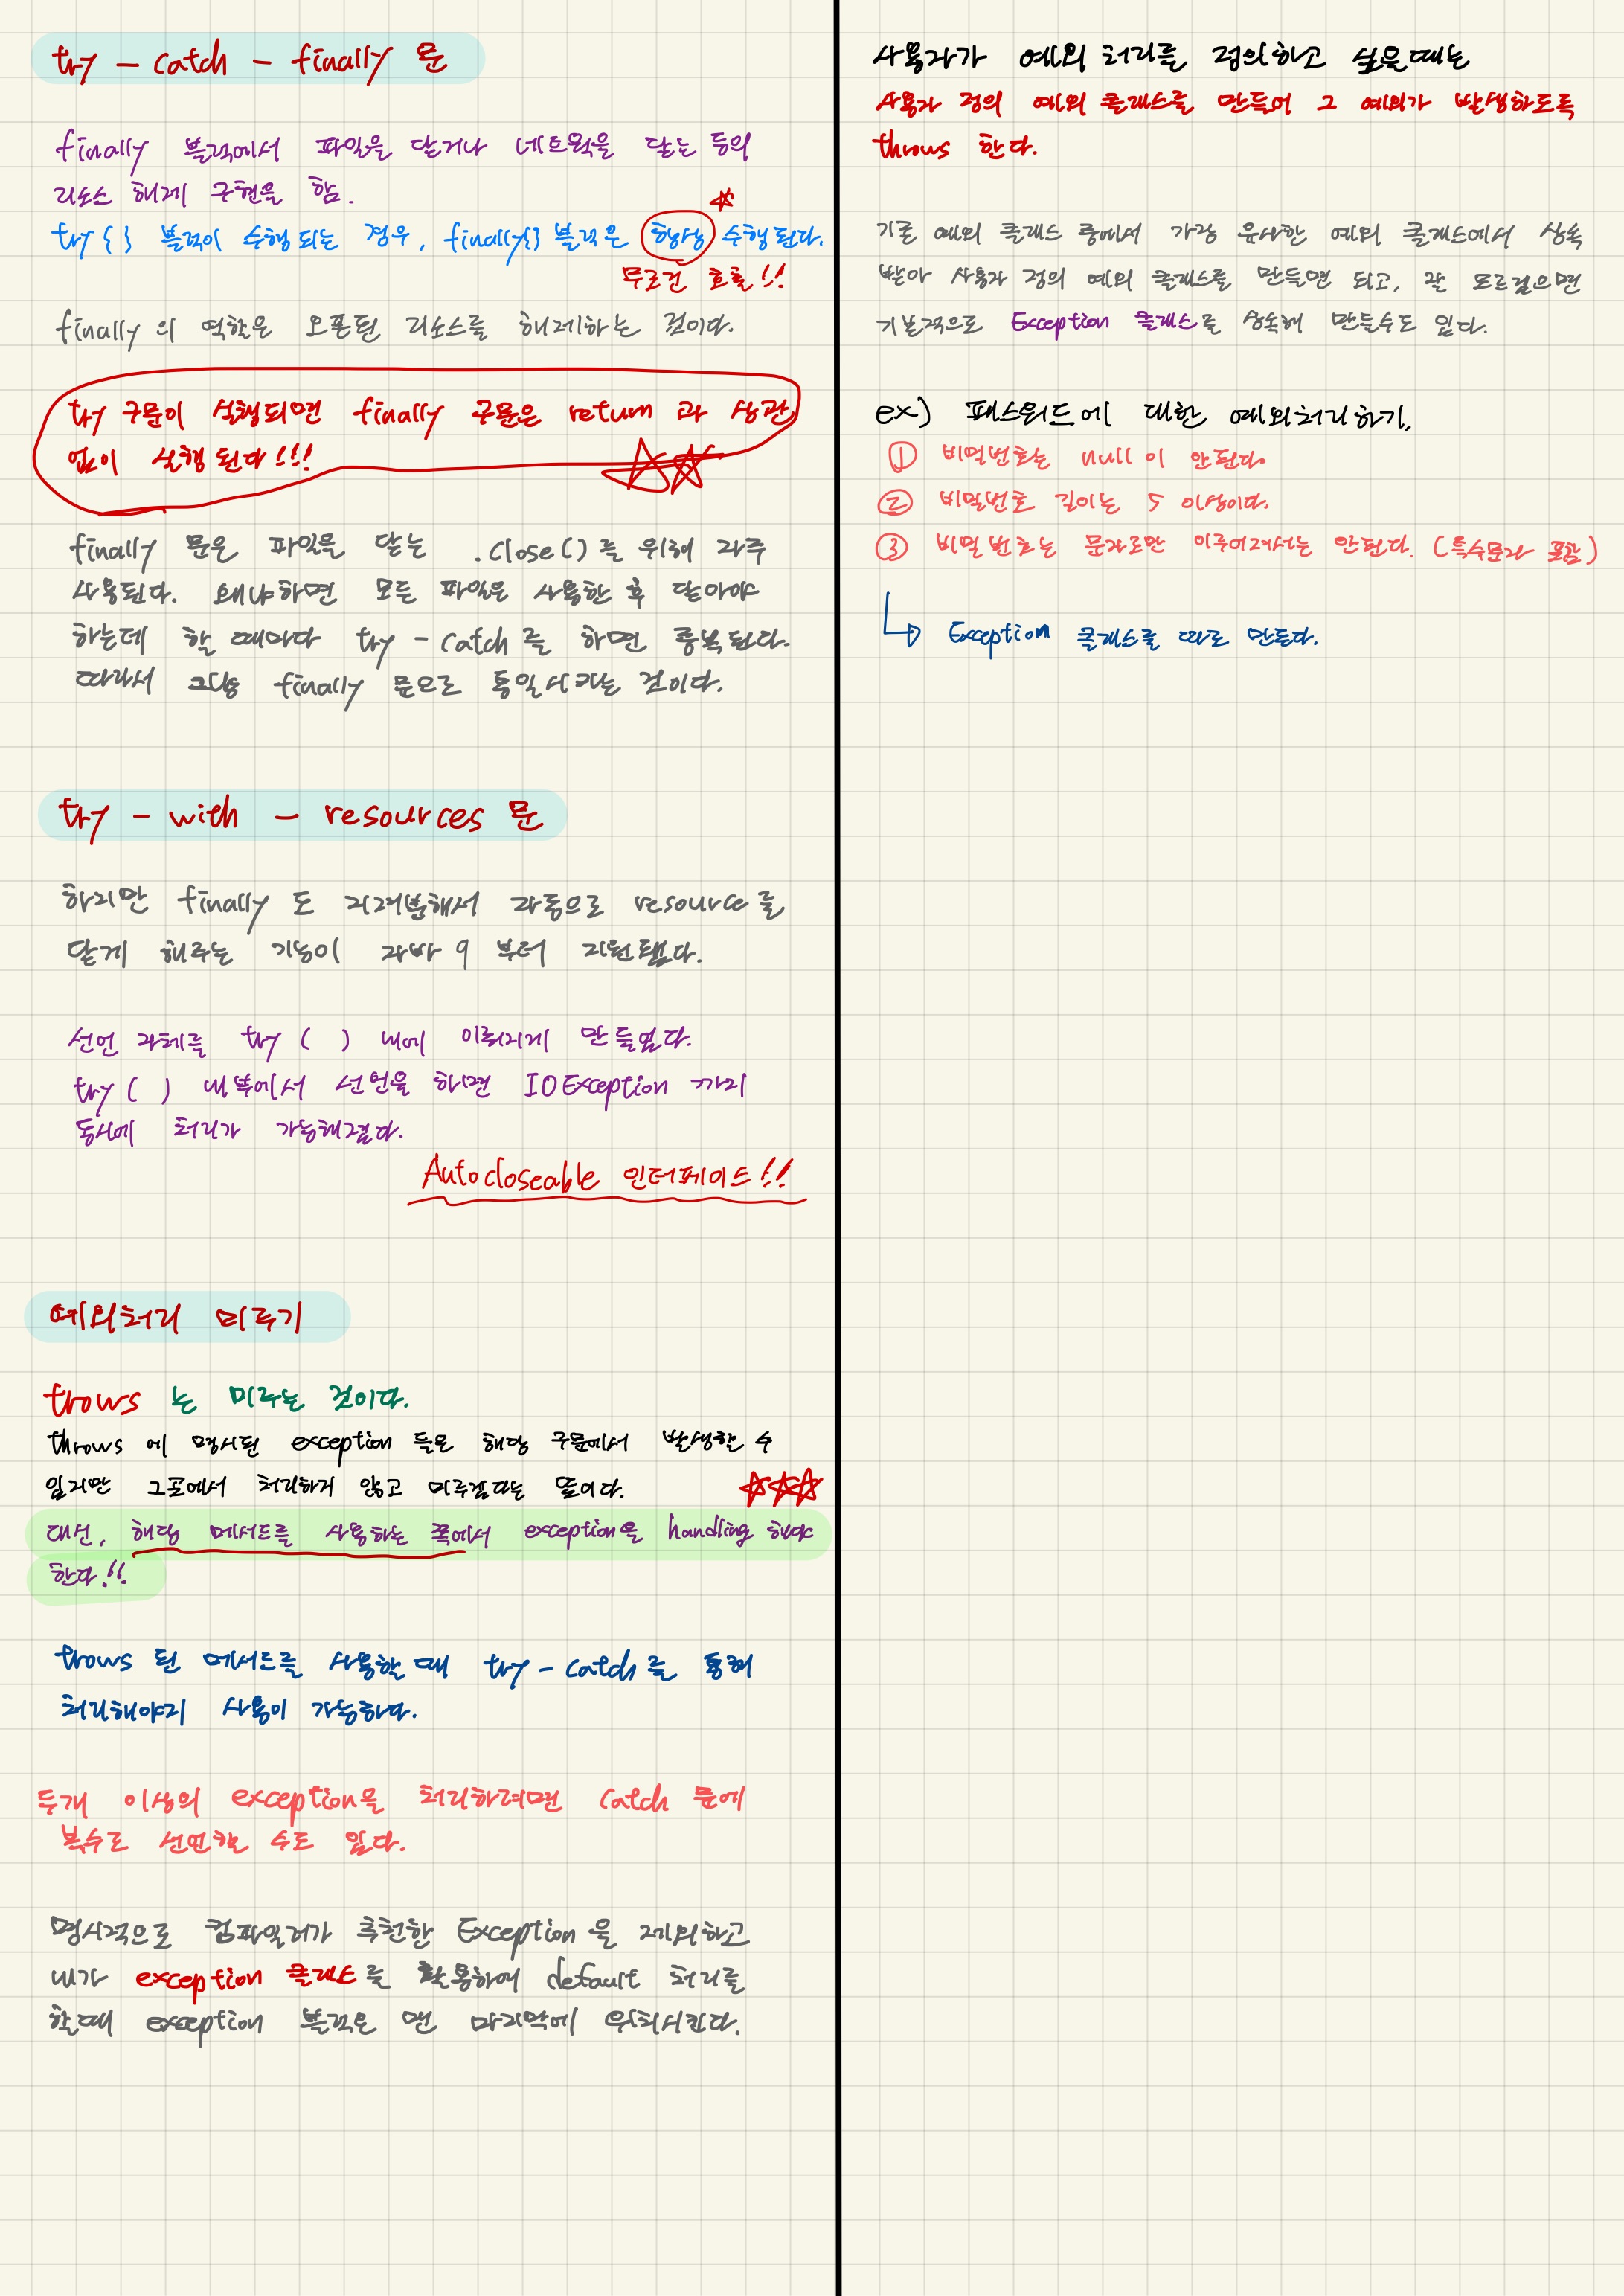 try - catch - finally 문
finally 블럭에서 파일을 닫거나 네트웍을 닫는 등의
리소스 해제 구현을 함.
try { } 블럭이 수행되는 경우, finally{} 블럭은 항상 수행된다.
무조건 호출!!
finally 의 역할은 오픈된 리소스를 해제하는 것이다.
try 구문이 실행되면 finally 구문은 return 과 상관
없이 실행된다!!!
finally 문은 파일을 닫는 .close()를 위해 자주
사용된다. 왜냐하면 모든 파일은 사용한 후 닫아야
하는데 할 때마다 try - catch 를 하면 중복된다.
따라서 그냥 finally 문으로 통일시키는 것이다.
try - with - resources 문
하지만 finally 도 지저분해서 자동으로 resource를
닫게 해주는 기능이 자바 9 부터 지원됐다.
선언 자체를 try ( ) 내에 이뤄지게 만들었다.
try ( ) 내부에서 선언을 하면 IOException 까지
동시에 처리가 가능해졌다.
Autocloseable 인터페이스!!
예외처리 미루기
trows 는 미루는 것이다.
throws 에 명시된 exception 들은 해당 구문에서 발생할 수
있지만 그곳에서 처리하지 않고 미루겠다는 뜻이다.
대신, 해당 메서드를 사용하는 쪽에서 exception을 handling 해야
한다!!
trows 된 메서드를 사용할 때 try - catch 를 통해
처리해야지 사용이 가능하다.
두개 이상의 exception을 처리하려면 catch 문에
복수로 선언할 수도 있다.
명시적으로 컴파일러가 추천한 Exception 을 제외하고
내가 exception 클래스를 활용하여 default 처리를
할때 exception 블럭은 맨 마지막에 위치시킨다.
사용자가 예외 처리를 정의하고 싶을때는
사용자 정의 예외 클래스를 만들어 그 예외가 발생하도록
throws 한다.
기존 예외 클래스 중에서 가장 유사한 예외 클래스에서 상속
받아 사용자 정의 예외 클래스를 만들면 되고, 잘 모르겠으면
기본적으로 Exception 클래스를 상속해 만들수도 있다.
ex) 패스워드에 대한 예외처리하기.
① 비밀번호는 null이 안된다
② 비밀번호 길이는 5 이상이다.
③ 비밀번호는 문자로만 이루어져서는 안된다. (특수문자 포함)
Exception 클래스를 따로 만든다.